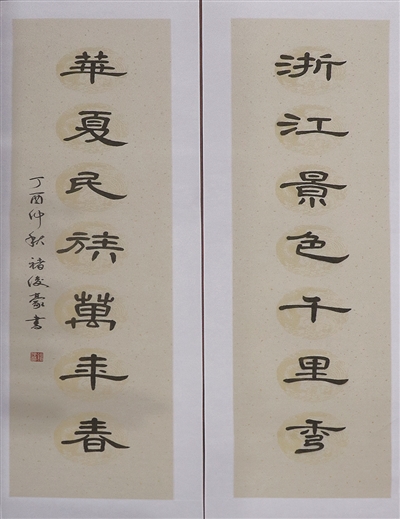 浙江景色千里秀
華夏民族萬年春
丁酉仲秋 褚俊豪書